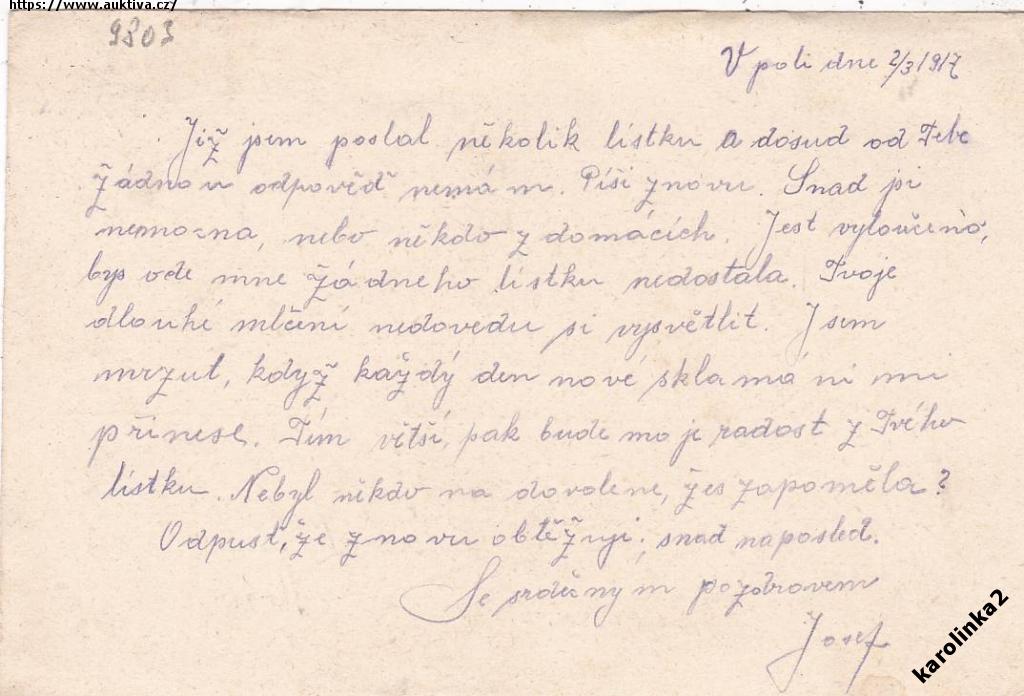 https://www.auktiva.cz/
9803
V poli dne 2/3 1917
Již jsem poslal několik lístku a dosud od Tebe
žádnou odpověď nemám. Píši znovu. Snad jsi
nemocna, nebo někdo z domácích. Jest vyloučeno,
bys ode mne žádneho lístku nedostala. Tvoje
dlouhé mlčení nedovedu si vysvětlit. Jsem
mrzut, když každý den nové sklamání mi
přinese. Tím větší, pak bude moje radost z Tvého
lístku. Nebyl někdo na dovolene, žes zapoměla?
Odpusť, že znovu obtěžuji, snad naposled.
Se srdečným pozdravem
Josef
karolinka2